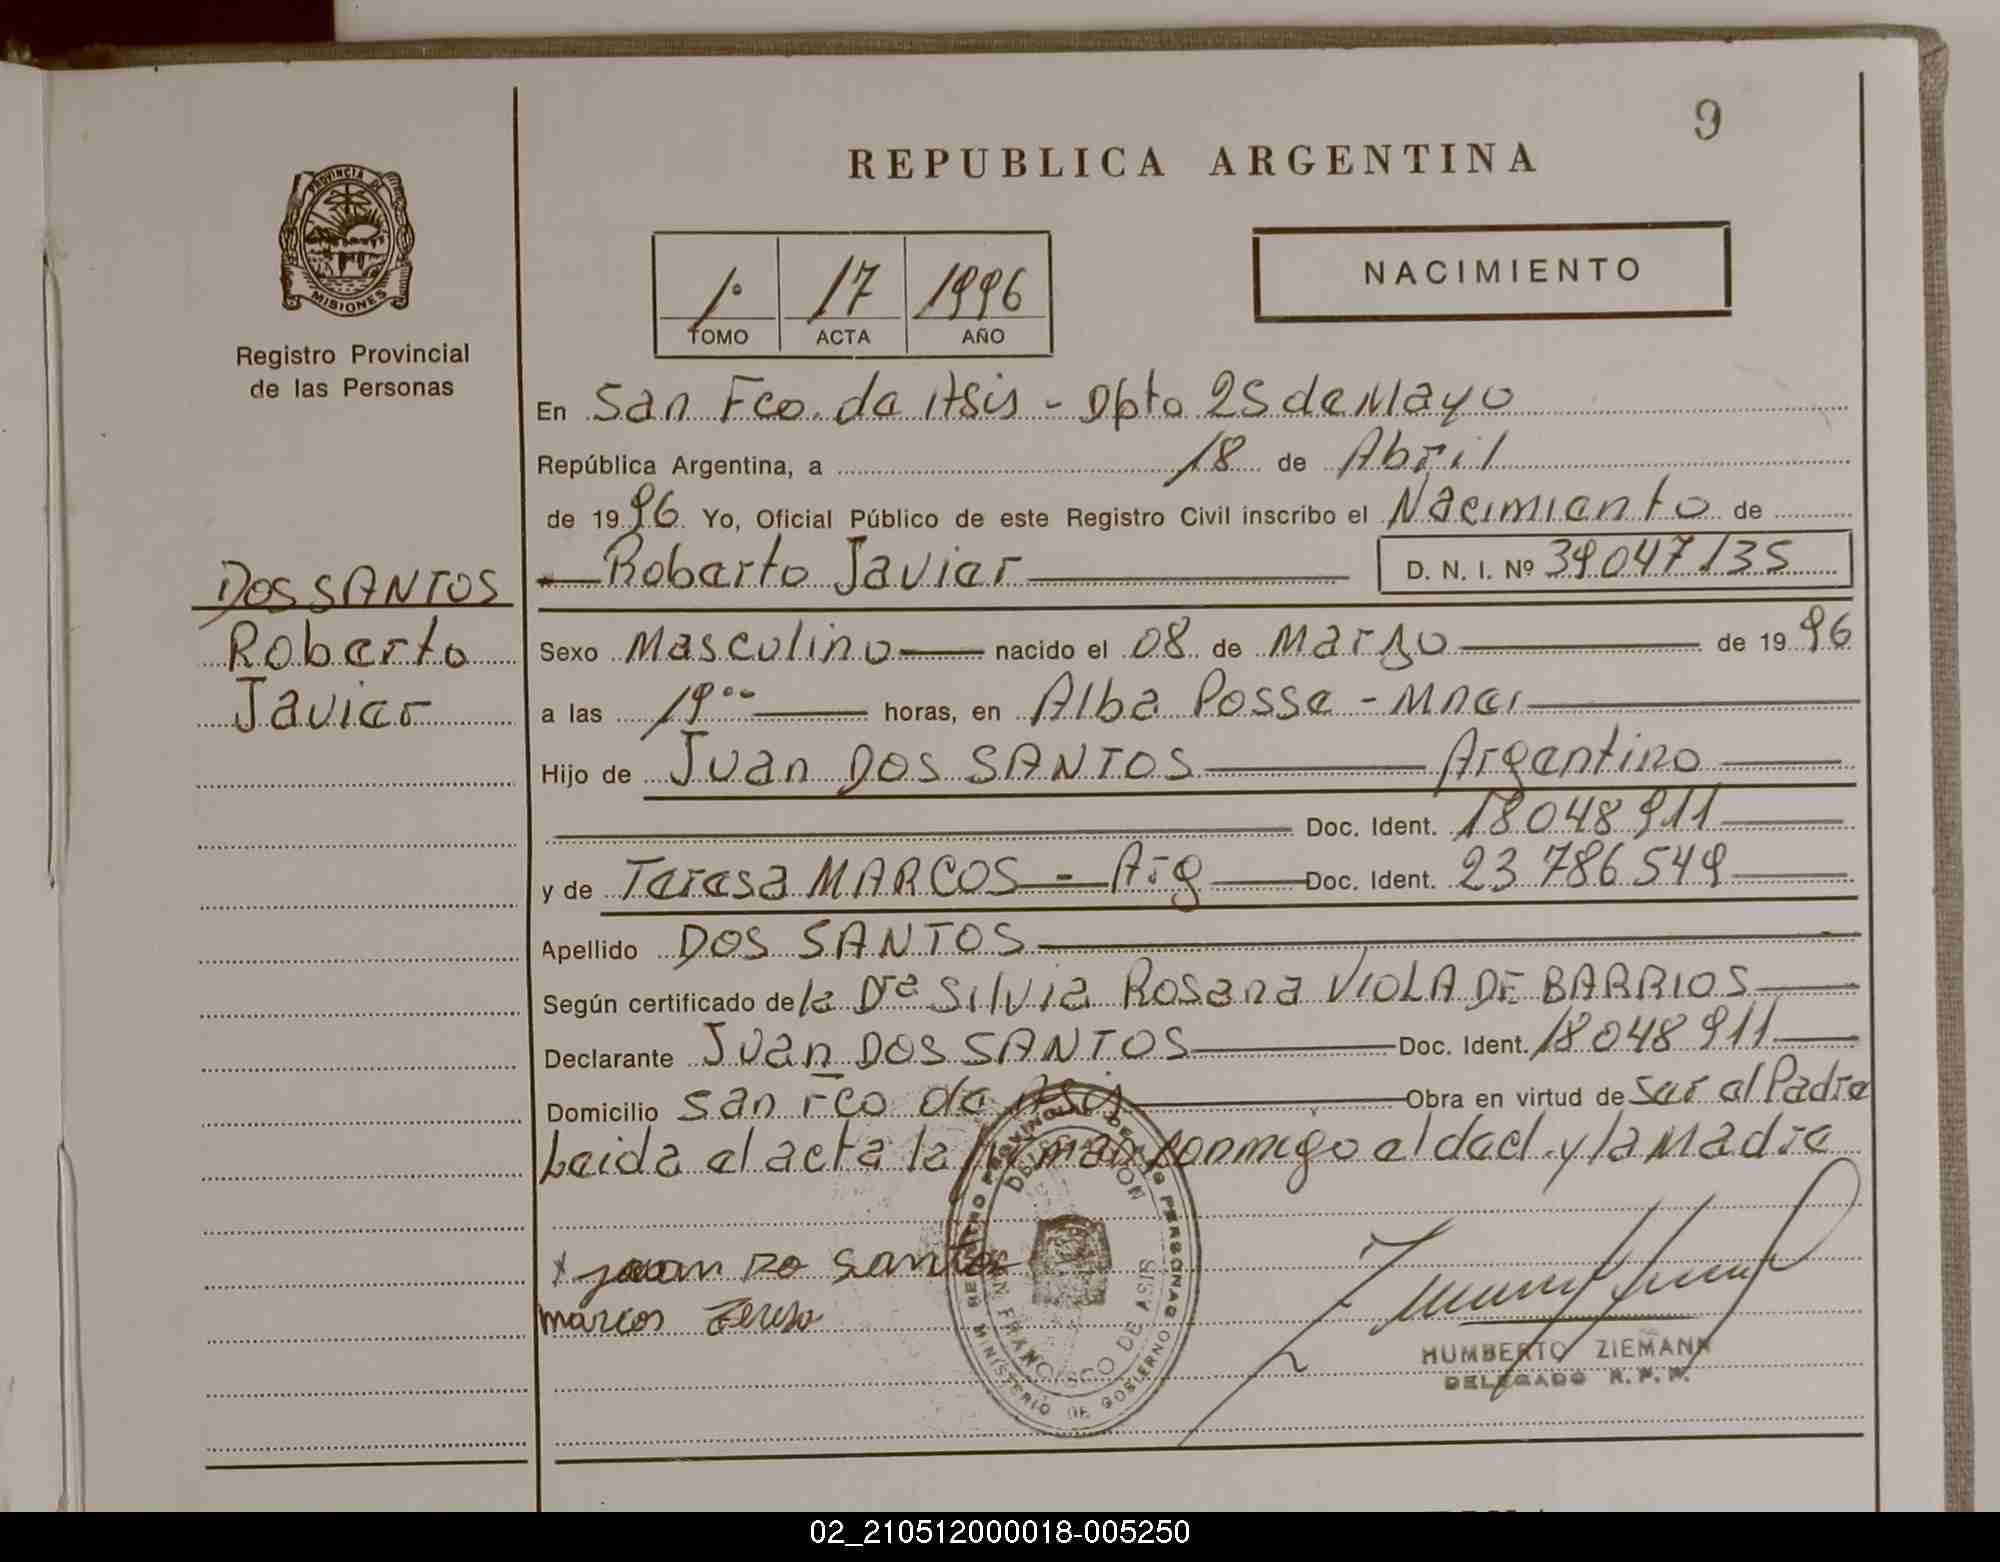 9
REPUBLICA ARGENTINA
PROVINCIA DE
MISIONES
Registro Provincial
de las Personas
1º 17 1996
TOMO ACTA AÑO
NACIMIENTO
En San Fco. de Asis - Dpto 25 de Mayo
República Argentina, a 18 de Abril
de 1996 Yo, Oficial Público de este Registro Civil inscribo el Nacimiento de
Roberto Javier D. N. I. Nº 39047135
DOS SANTOS
Roberto
Javier
Sexo Masculino nacido el 08 de Marzo de 1996
a las 19⁰⁰ horas, en Alba Posse - Mnes
Hijo de Juan DOS SANTOS Argentino
Doc. Ident. 18048911
y de Teresa MARCOS - Arg Doc. Ident. 23786549
Apellido DOS SANTOS
Según certificado de la Dra Silvia Rosana VIOLA DE BARRIOS
Declarante Juan DOS SANTOS Doc. Ident. 18048911
Domicilio San Fco de Asis Obra en virtud de Ser el Padre
Leida el acta la firman conmigo el decl. y la Madre
REGISTRO PROVINCIAL DE LAS PERSONAS
DELEGACION
SAN FRANCISCO DE ASIS
MINISTERIO DE GOBIERNO
x Juan Do Santos
marcos Teresa
HUMBERTO ZIEMANN
DELEGADO R. P. P.
02_210512000018-005250